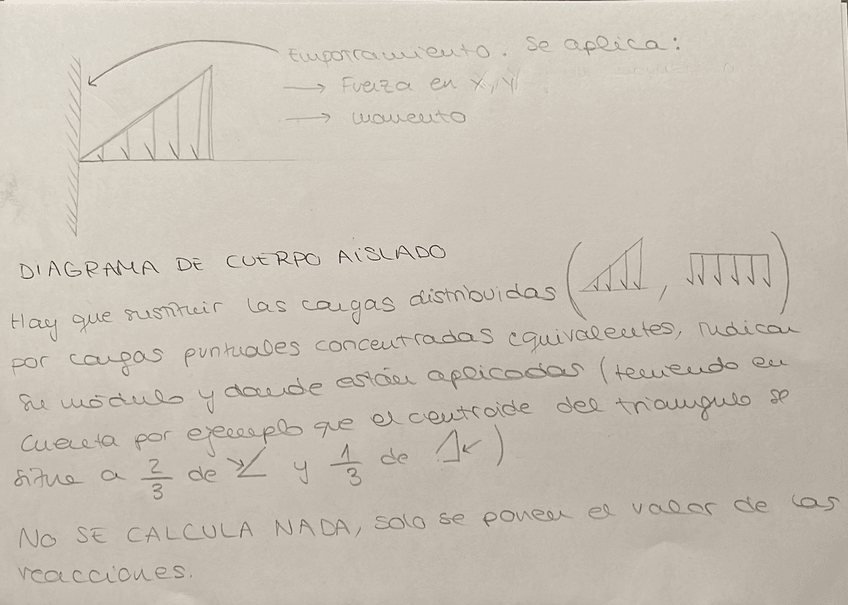 Emporramiento. Se aplica:
→ Fuerza en X, Y
→ Momento
DIAGRAMA DE CUERPO AISLADO
Hay que sustituir las cargas distribuidas ( , )
por cargas puntuales concentradas equivalentes, indicar
su módulo y donde están aplicadas (teniendo en
cuenta por ejemplo que el centroide del triangulo se
situe a 2/3 de y 1/3 de )
NO SE CALCULA NADA, solo se ponen el valor de las
reacciones.